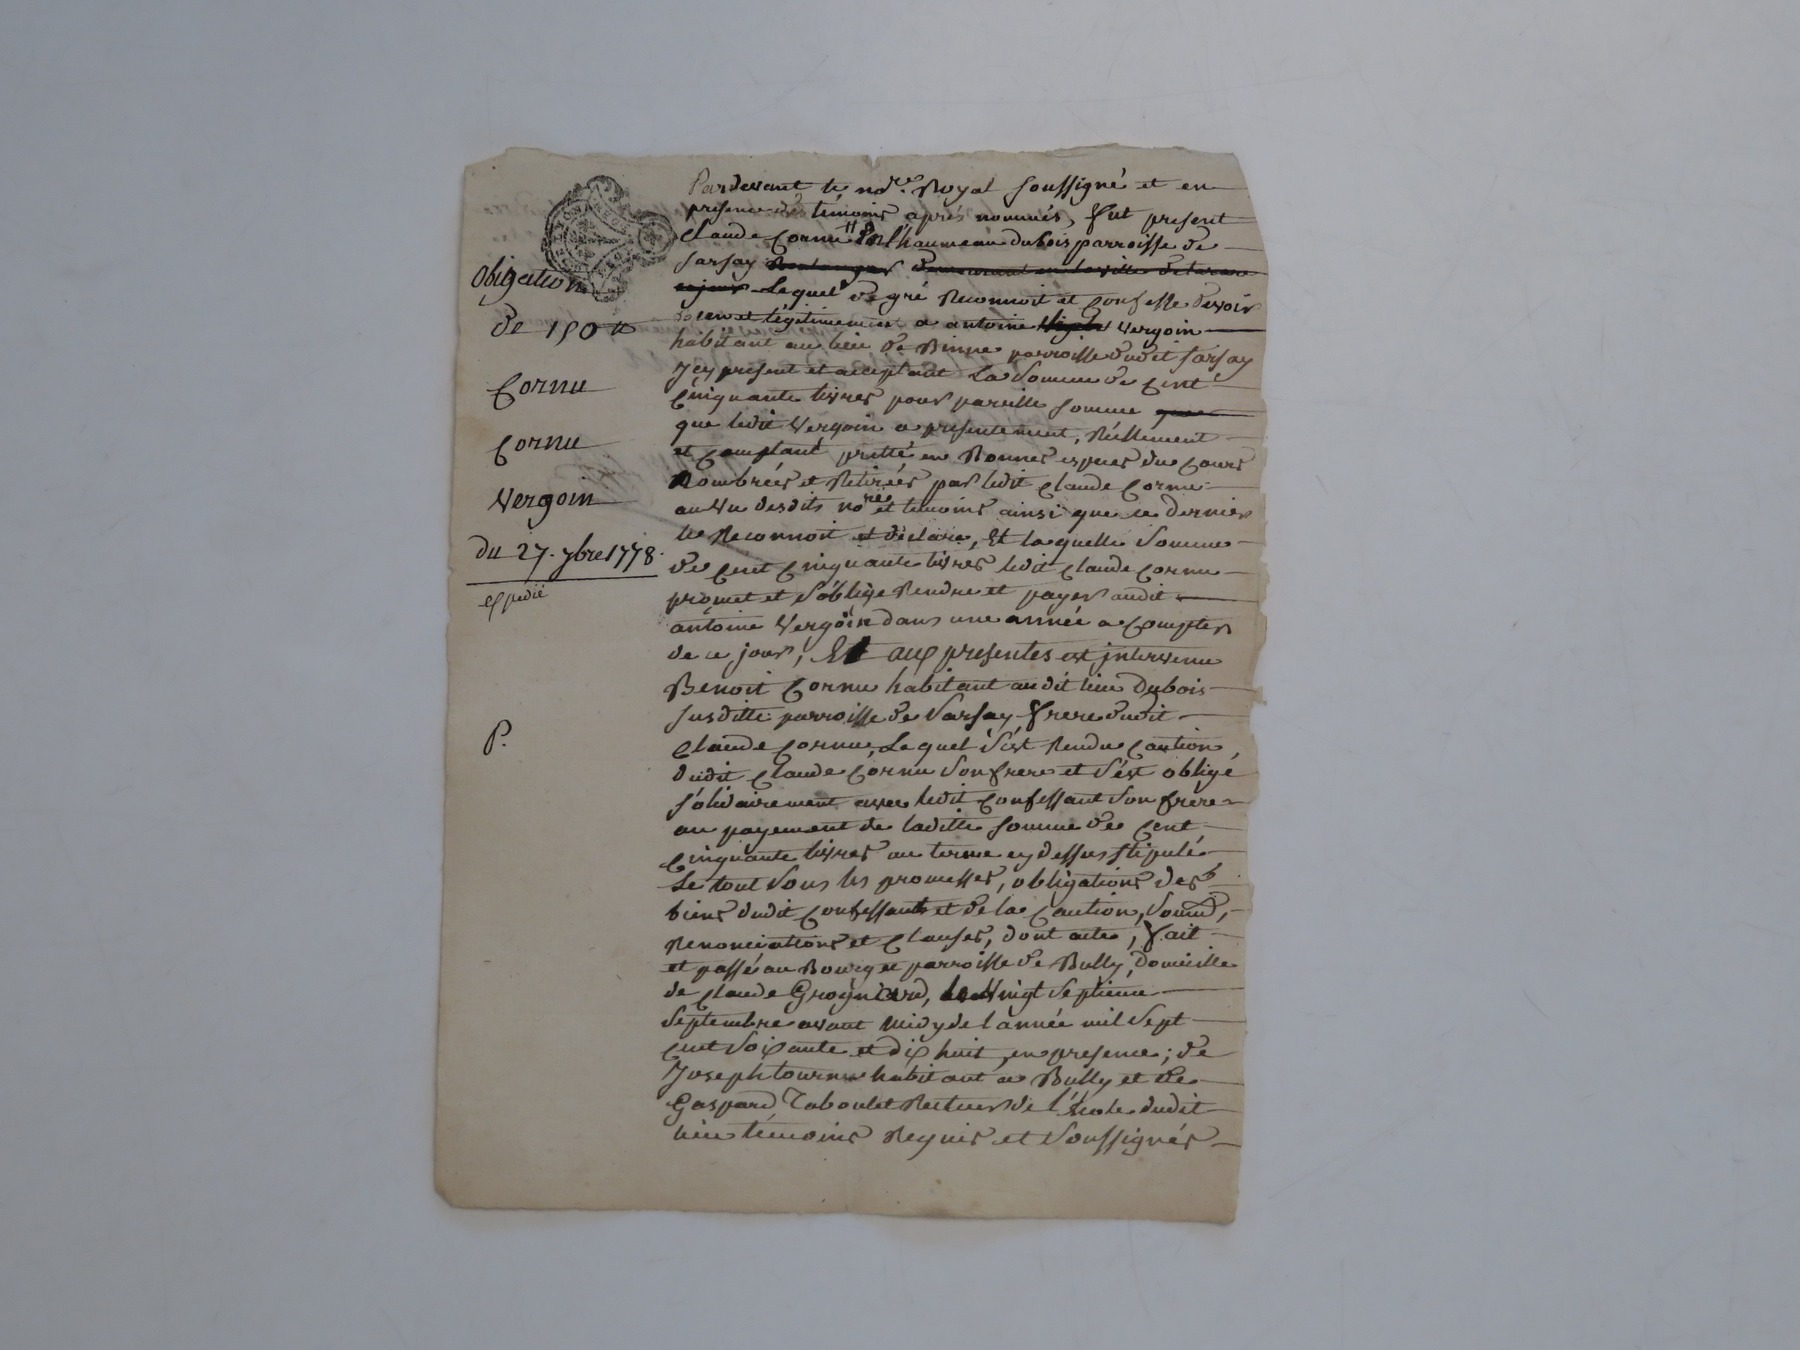 Obligation
de 150 tt
Cornu
Cornu
Vergoin
du 27. 7bre 1778.
expedié
P.
Pardevant le nore. Royal soussigné et en
presence des témoins après nommés, fut present
Claude Cornu de l'haumeau dubois parroisse de
Sarsay
Lequel de gré Reconnoit et Confesse devoir
bien et légitimement a antoine Vergoin
habitant au lieu de Binne parroisse dudit Sarsay
Jcy present et acceptant La somme de Cent
Cinquante livres pour pareille somme
que ledit Vergoin a presentement, Réellement
et Comptant pretté en Bonnes espces du Cours
Nombrées et Retirées par ledit Claude Cornu
au Vu desdits nore et temoins ainsi que ce dernier
le Reconnoit et déclare, Et laquelle somme
de Cent Cinquante livres ledit Claude Cornu
promet et s'oblige Rendre et payer audit
antoine Vergoin dans une année a Compter
de ce jour, Et aux presentes est jntervenu
Benoit Cornu habitant audit lieu Dubois
susditte parroisse de Sarsay frere dudit
Claude Cornu, Lequel s'est Rendu Caution
dudit Claude Cornu son frere et s'est obligé
solidairement avec ledit Confessant son frere
au payement de laditte somme de Cent
Cinquante livres au terme cy dessus stipulé
Le tout sous les promesses, obligations des
biens dudit Confessant et de la Caution,
Renonciations et Clauses, dont acte, fait
et passé au Bourg et parroisse de Bully, Domicille
de Claude Grognard, le Vingt Septieme
Septembre avant Midy de l'année mil Sept
Cent Soixante et dix huit, en presence; de
Joseph tournu habitant a Bully et de
Gaspard Taboulet Recteur de l'école dudit
lieu témoins Requis et soussignés